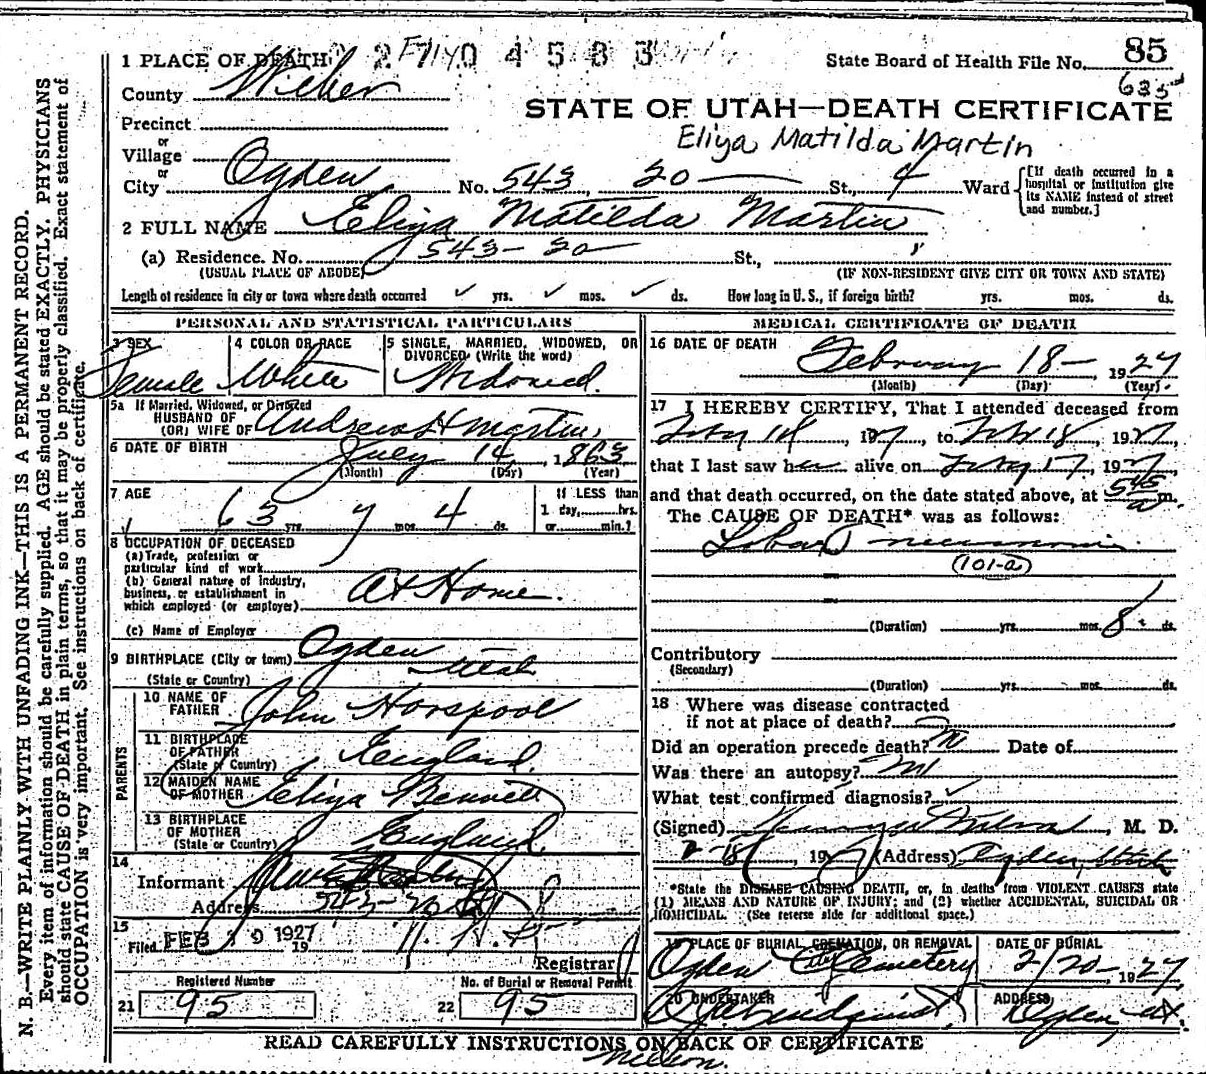 1 PLACE OF DEATH 2 7 0 4 5 8 3
State Board of Health File No. 85
635
County Weber
STATE OF UTAH—DEATH CERTIFICATE
Precinct
Eliya Matilda Martin
or
Village
or
City Ogden No. 543, 20 St., 4 Ward
[If death occurred in a hospital or institution give its NAME instead of street and number.]
2 FULL NAME Eliza Matilda Martin
(a) Residence. No. 543-20 St.,
(USUAL PLACE OF ABODE) (IF NON-RESIDENT GIVE CITY OR TOWN AND STATE)
Length of residence in city or town where death occurred ✓ yrs. ✓ mos. ✓ ds. How long in U. S., if foreign birth? yrs. mos. ds.
PERSONAL AND STATISTICAL PARTICULARS
3 SEX Female
4 COLOR OR RACE White
5 SINGLE, MARRIED, WIDOWED, OR DIVORCED (Write the word) Widowed.
5a If Married, Widowed, or Divorced
HUSBAND OF
(OR) WIFE OF Andrew H Martin,
6 DATE OF BIRTH July 14, 1863
(Month) (Day) (Year)
7 AGE 63 yrs. 7 mos. 4 ds.
If LESS than
1 day, hrs.
or min.?
8 OCCUPATION OF DECEASED
(a) Trade, profession or
particular kind of work
(b) General nature of industry,
business, or establishment in
which employed (or employer) At Home.
(c) Name of Employer
9 BIRTHPLACE (City or town) Ogden
(State or Country) Utah
PARENTS
10 NAME OF FATHER John Horspool
11 BIRTHPLACE OF FATHER (State or Country) England.
12 MAIDEN NAME OF MOTHER Eliza Bennett
13 BIRTHPLACE OF MOTHER (State or Country) England.
14
Informant
Address 543-20
15
Filed FEB 19 1927 19
Registrar
Registered Number
21 95
No. of Burial or Removal Permit
22 95
MEDICAL CERTIFICATE OF DEATH
16 DATE OF DEATH February 18-, 1927
(Month) (Day) (Year)
17 I HEREBY CERTIFY, That I attended deceased from
Feby 1927, to Feb 18, 1927,
that I last saw her alive on Feby 17, 1927,
and that death occurred, on the date stated above, at 545 a m.
The CAUSE OF DEATH* was as follows:
Lobar Pneumonia
(101-a)
(Duration) yrs. mos. 8 ds.
Contributory
(Secondary)
(Duration) yrs. mos. ds.
18 Where was disease contracted
if not at place of death?
Did an operation precede death? no Date of
Was there an autopsy? no
What test confirmed diagnosis? ✓
(Signed) , M. D.
2-18, 1927 (Address) Ogden, Utah
*State the DISEASE CAUSING DEATH, or, in deaths from VIOLENT CAUSES state
(1) MEANS AND NATURE OF INJURY; and (2) whether ACCIDENTAL, SUICIDAL OR
HOMICIDAL. (See reverse side for additional space.)
19 PLACE OF BURIAL, CREMATION, OR REMOVAL Ogden City Cemetery
DATE OF BURIAL 2/20-, 1927
20 UNDERTAKER
ADDRESS Ogden, Ut.
READ CAREFULLY INSTRUCTIONS ON BACK OF CERTIFICATE
N. B.—WRITE PLAINLY WITH UNFADING INK—THIS IS A PERMANENT RECORD.
Every item of information should be carefully supplied. AGE should be stated EXACTLY. PHYSICIANS
should state CAUSE OF DEATH in plain terms, so that it may be properly classified. Exact statement of
OCCUPATION is very important. See instructions on back of certificate.